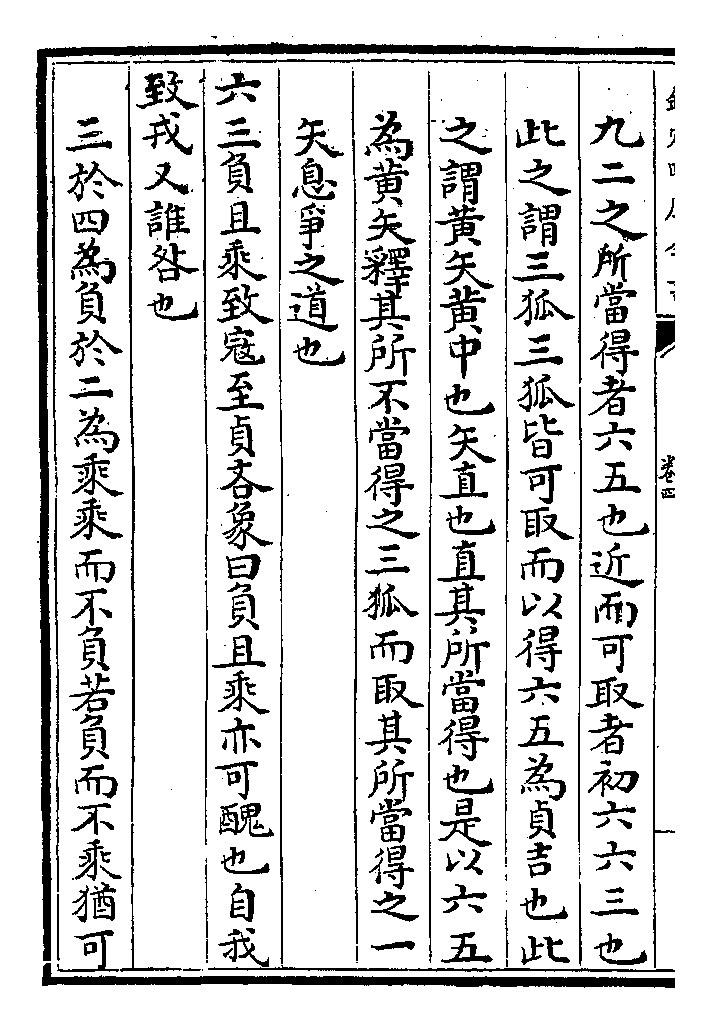 九二之所當得者六五也近而可取者初六六三也
此之謂三狐三狐皆可取而以得六五為貞吉也此
之謂黄矢黄中也矢直也直其所當得也是以六五
為黄矢釋其所不當得之三狐而取其所當得之一
矢息爭之道也
六三負且乘致寇至貞吝象曰負且乘亦可醜也自我
致戎又誰咎也
三於四為負於二為乘乘而不負若負而不乘猶可
卷四